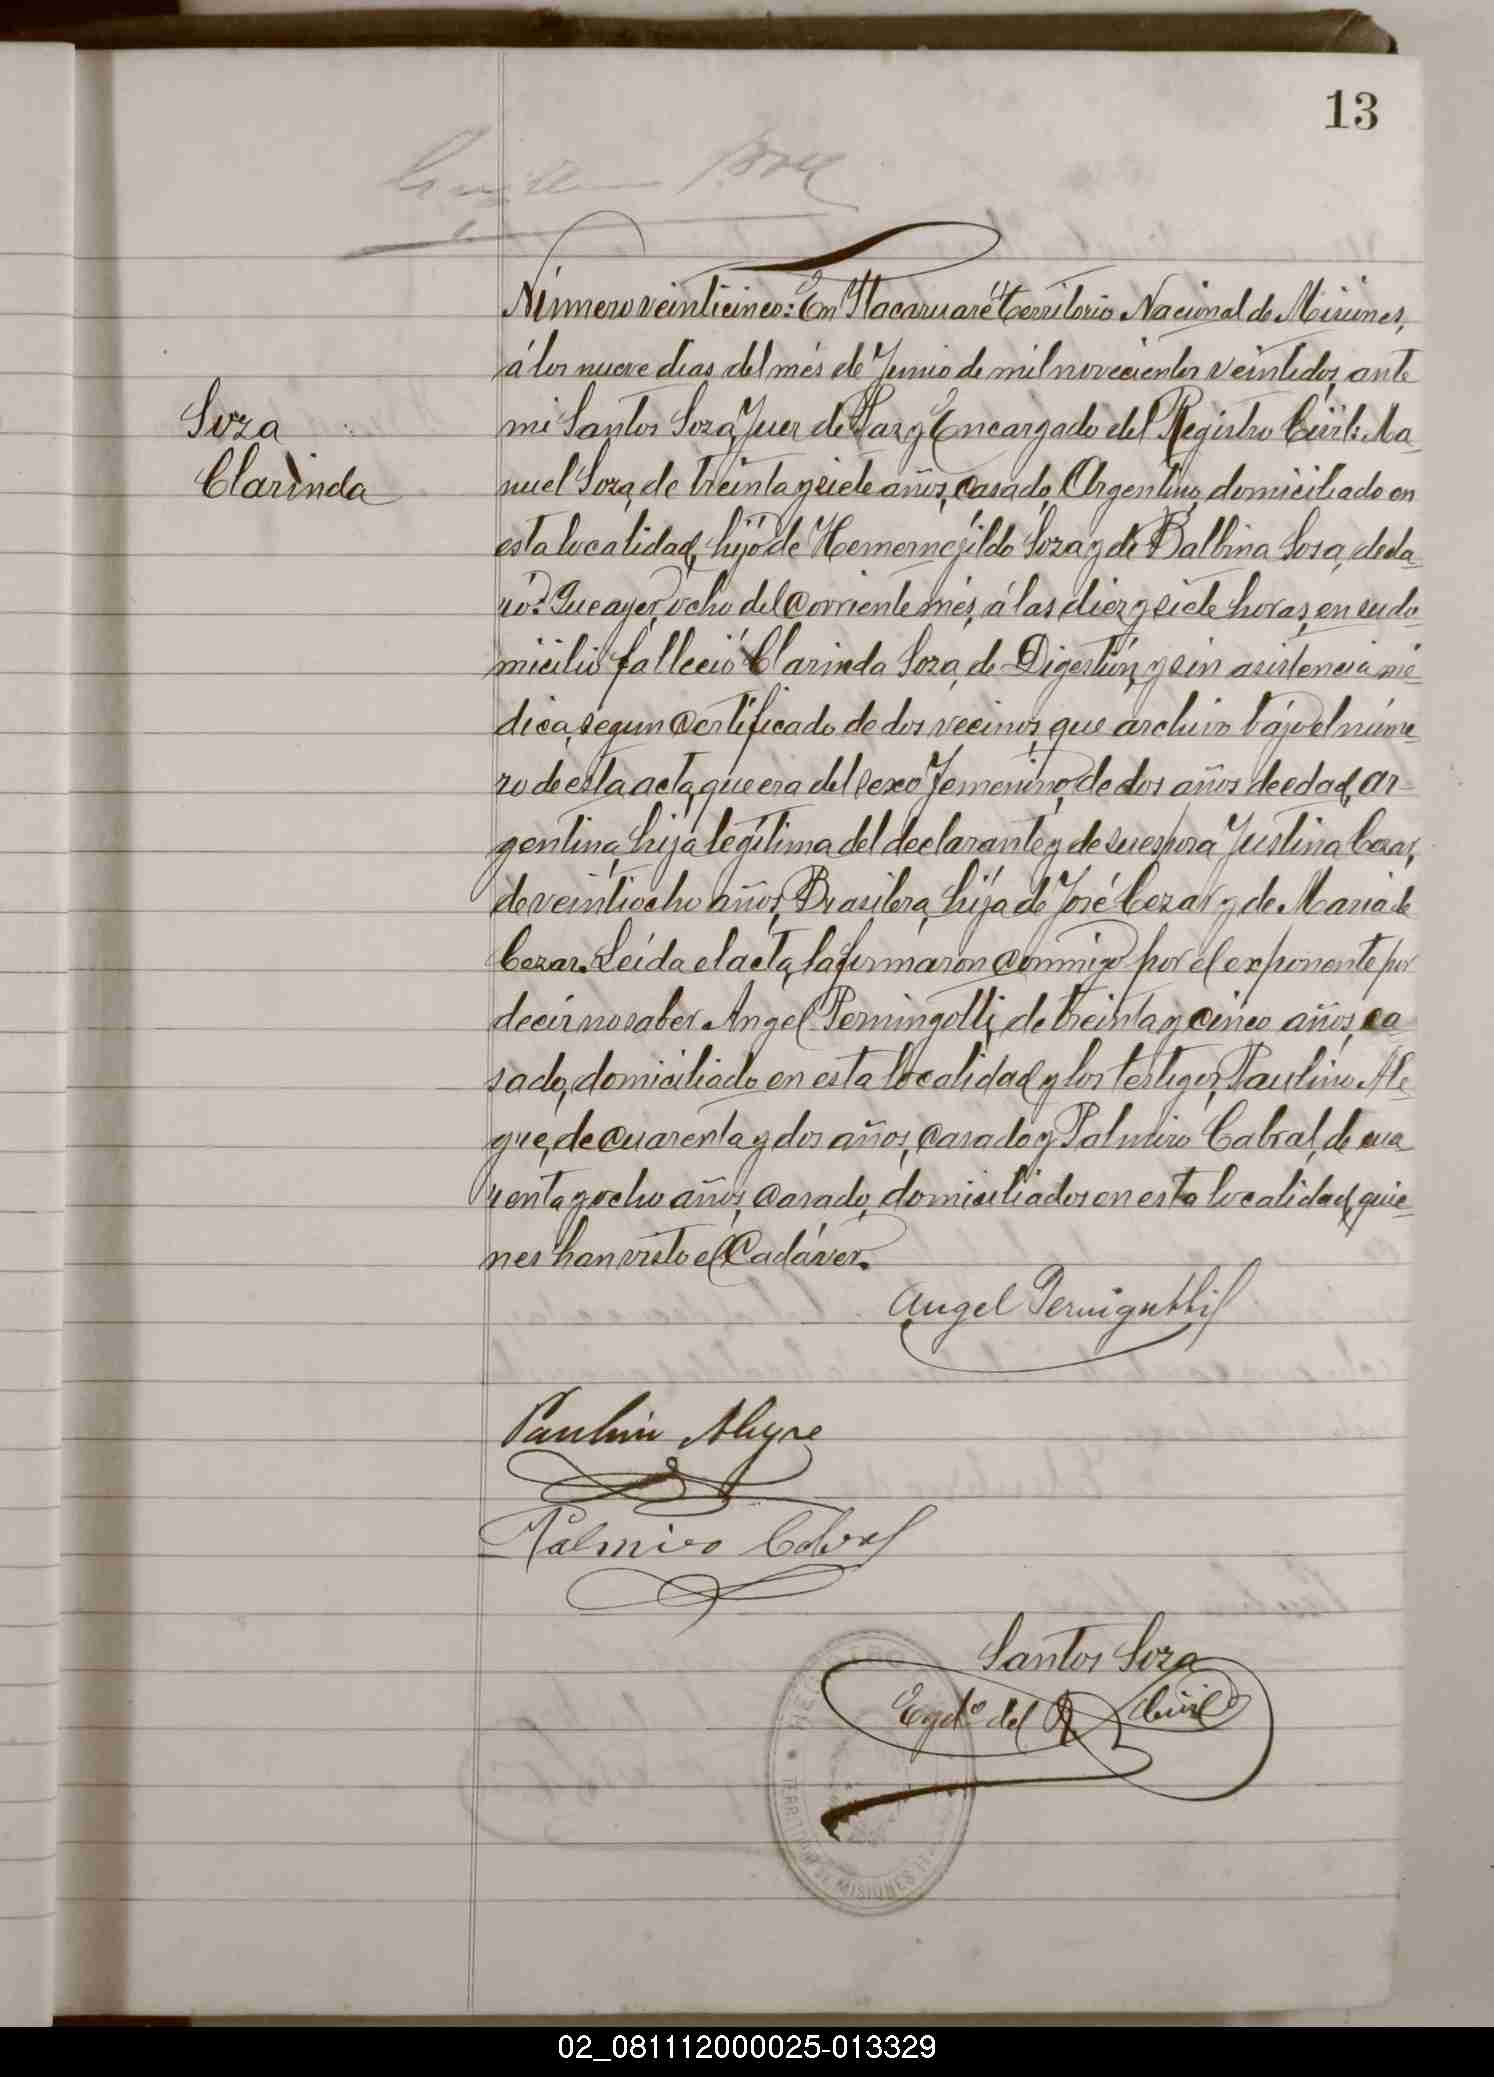 13
Número veinticinco: En Itacaruaré Territorio Nacional de Misiones,
á los nueve dias del més de Junio de mil novecientos veintidos, ante
Soza
mi Santos Soza, Juez de Paz y Encargado del Registro Civil: Ma-
Clarinda
nuel Soza, de treinta y siete años, casado, Argentino, domiciliado en
esta localidad, hijo de Hemernejildo Soza y de Balbina Sosa, decla-
ró: Que ayer, ocho del corriente més, á las diez y siete horas, en su do-
micilio falleció Clarinda Soza, de Digestión, y sin asistencia mé-
dica, segun certificado de dos vecinos, que archivo bájo el núme-
ro de esta acta, que era del sexo Femenino, de dos años de edad, ar-
gentina, hija legítima del declarante y de su esposa Justina Cezar,
de veintiocho años, Brasilera, hija de José Cezar y de Maria de
Cezar. Leída el acta, la firmaron conmigo por el exponente por
decir no saber Angel Perningotti, de treinta y cinco años, ca-
sado, domiciliado en esta localidad y los testigos, Paulino Ale-
gre, de cuarenta y dos años, casado y Palmiro Cabral, de cua
renta y ocho años, casado, domiciliados en esta localidad, quie-
nes han visto el Cadáver.
Angel Pernigotti
Paulino Alegre
Palmiro Cabral
Santos Soza
Egdo. del R. Civil
TERRITORIO DE MISIONES
02_081112000025-013329